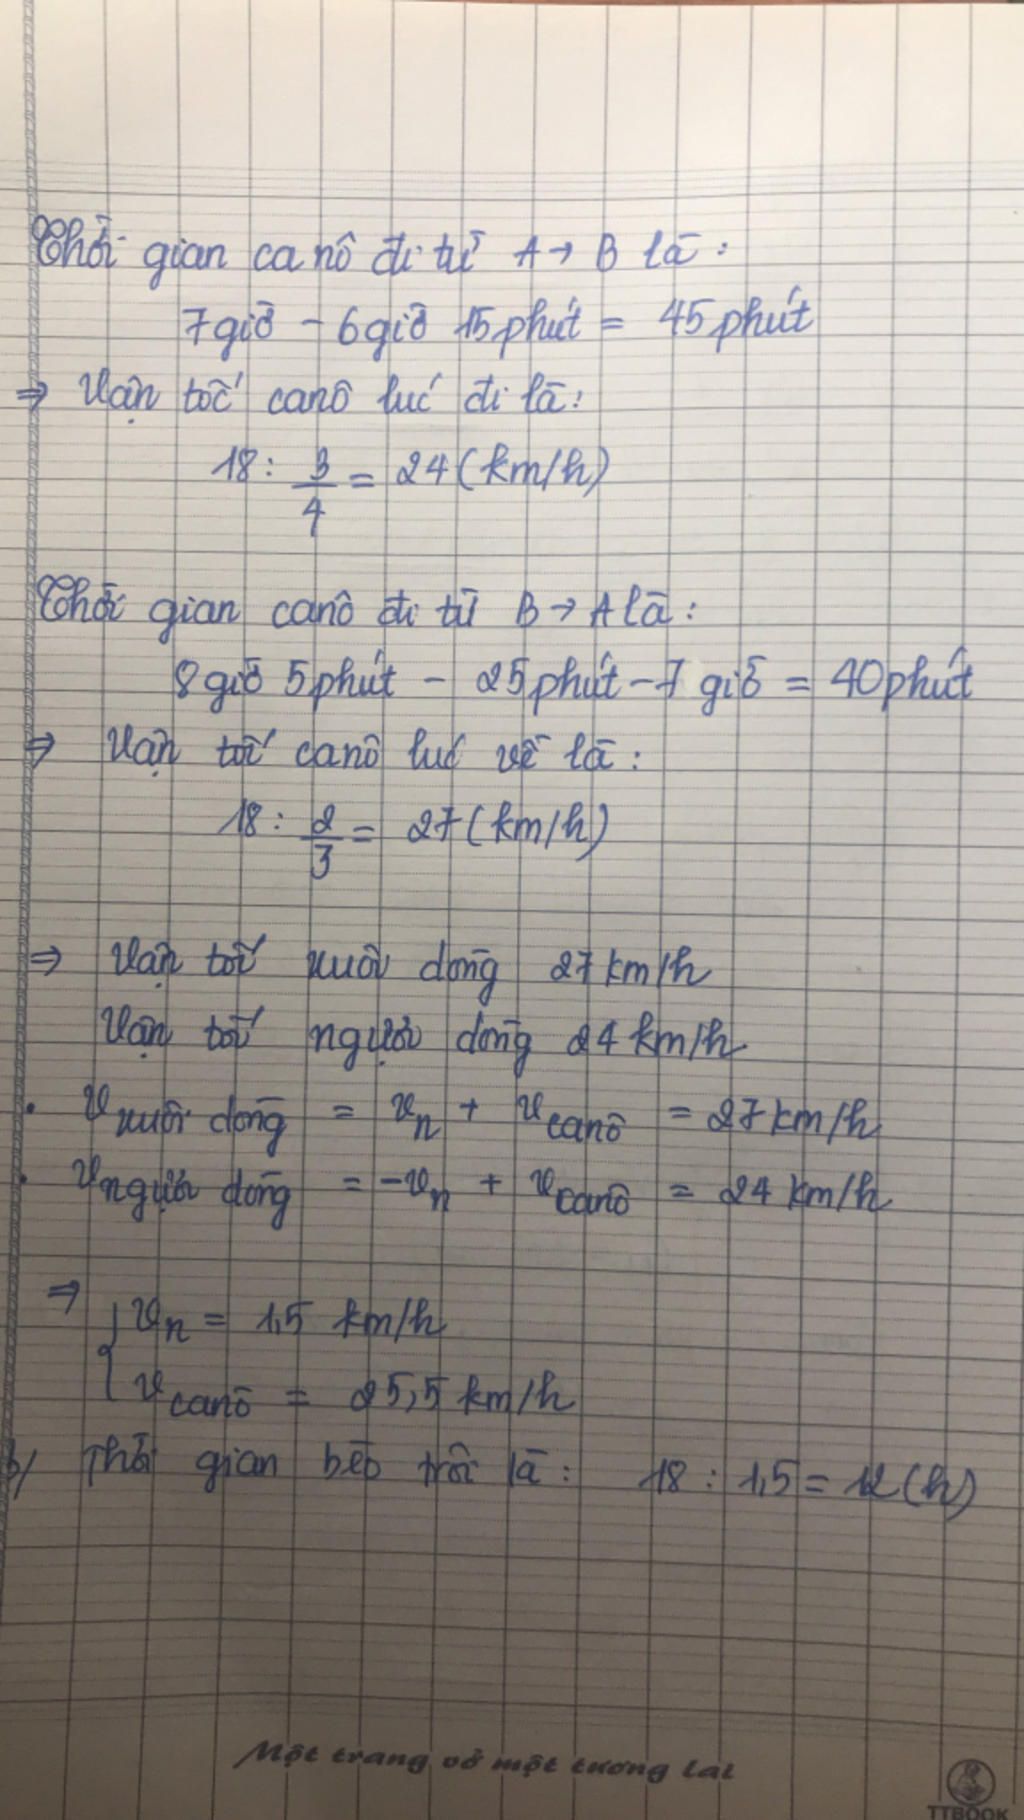 Thời gian ca nô đi từ A → B là:
7giờ - 6giờ 15phút = 45phút
⇒ Vận tốc canô lúc đi là:
18 : 3/4 = 24 (km/h)
Thời gian canô đi từ B → A là:
8giờ 5phút - 25phút - 7 giờ = 40phút
⇒ Vận tốc canô lúc về là:
18 : 2/3 = 27 (km/h)
⇒ Vận tốc xuôi dòng 27 km/h
Vận tốc ngược dòng 24 km/h
• v xuôi dòng = vn + v canô = 27 km/h
• v ngược dòng = -vn + v canô = 24 km/h
⇒ { vn = 1,5 km/h
v canô = 25,5 km/h
b/ Thời gian bèo trôi là: 18 : 1,5 = 12 (h)
Một trang vở một tương lai
TTBOOK